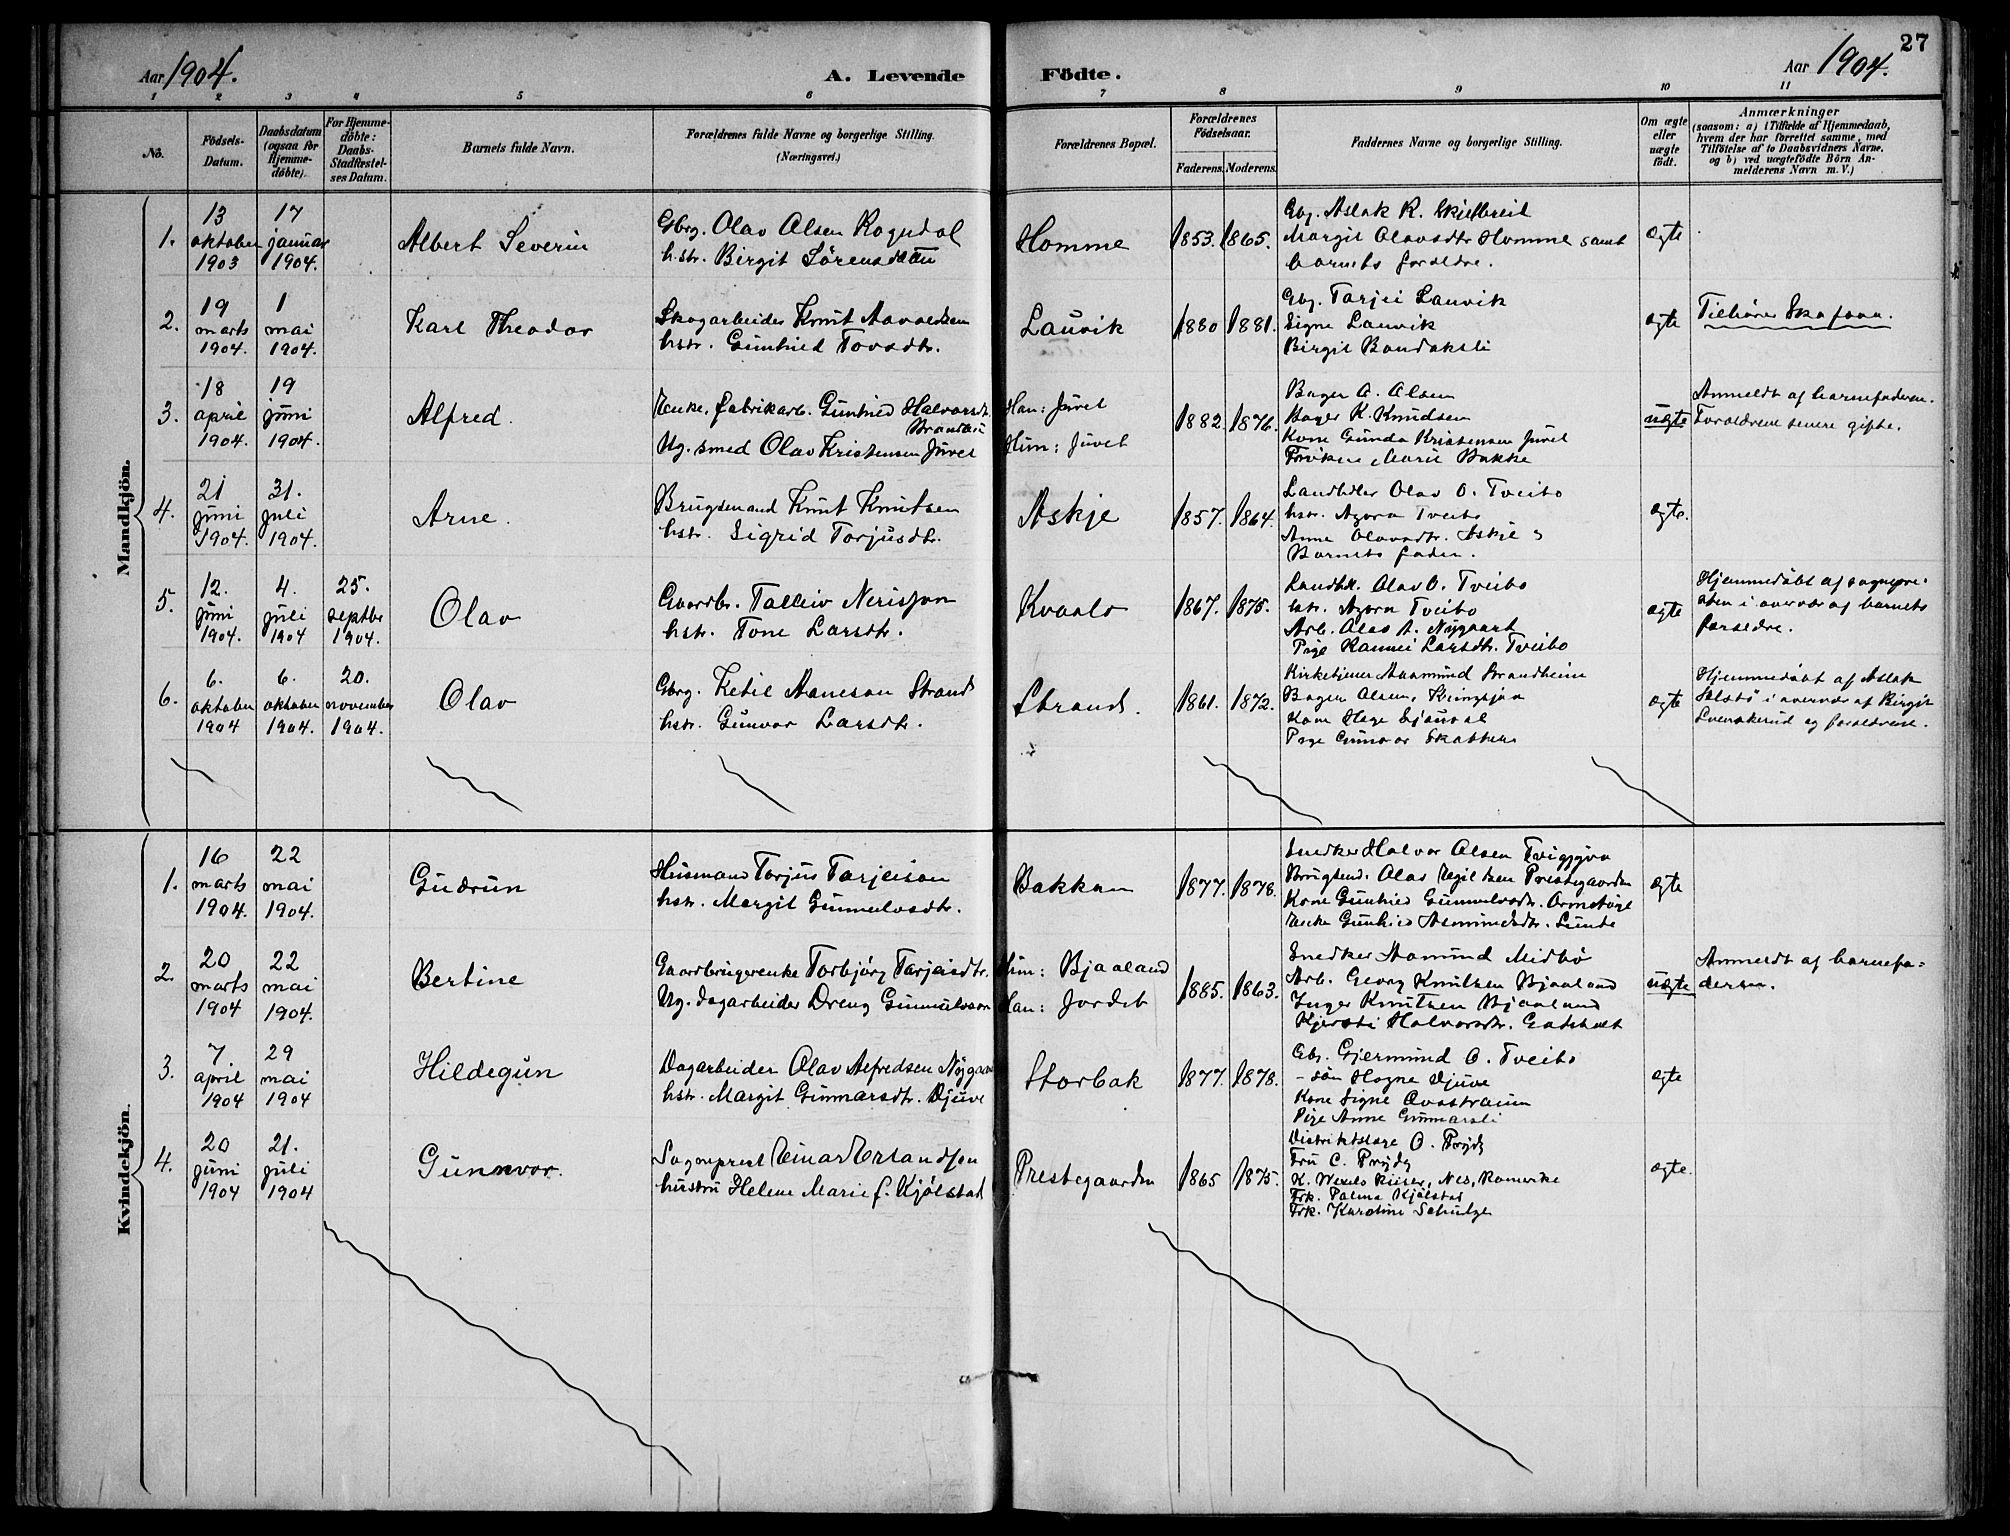 27
Aar 1904.
A. Levende
Födte.
Aar 1904.
1 2 3 4 5 6 7 8 9 10 11
No.
Födsels-Datum.
Daabsdatum (ogsaa for Hjemme-döbte).
For Hjemme-döbte: Daabs-Stadfæstel-ses Datum.
Barnets fulde Navn.
Forældrenes fulde Navne og borgerlige Stilling.
(Næringsvei.)
Forældrenes Bopæl.
Forældrenes Födselsaar.
Faderens. Moderens.
Faddernes Navne og borgerlige Stilling.
Om ægte eller uægte födt.
Anmærkninger
(saasom: a) i Tilfælde af Hjemmedaab,
hvem der har forrettet samme, med
Tilföielse af to Daabsvidners Navne,
og b) ved uægtefödte Börn An-
melderens Navn m. V.)
Mandkjön.
1.
13 oktober 1903
17 januar 1904.
Albert Severin
Gbrg. Olav Olsen Rogndal
hstr. Birgit Sörensdatter
Homme
1853. 1865.
Gbg. Aslak R. Skjelbreid
Margit Olavsdtr Homme samt
barnets forældre.
ægte
2.
19 marts 1904.
1 mai 1904.
Karl Theodor
Skogarbeider Knut Aavoldsen
hstr. Gunhild Tovsdtr.
Lauvik
1880 1881.
Gbg. Tarjei Lauvik
Signe Lauvik
Birgit Bandaksli
ægte
Tilhører Skafsaa.
3.
18 april 1904.
19 juni 1904.
Alfred.
Enke, fabrikarb. Gunhild Halvorsd.
Ug. smed Olav Kristensen Juvet
Han: Juvet
Hun: Juvet
1882. 1876.
Bager O. Olsen
Bager K. Knudsen
Kone Gunda Kristensen Juvet
Frøken Marie Bakke
uægte
Anmeldt af barnefaderen.
Forældrene senere gifte.
4.
21 juni 1904.
31. juli 1904.
Arne.
Brugsmand Knut Knutsen
hstr. Sigrid Torjusdtr.
Askje
1857. 1864.
Landhdler Olav O. Tveito
hstr. Azora Tveito
Anne Olavsdtr. Askje &
Barnets fader.
ægte.
5.
12. juni 1904.
4. juli 1904
25. septbr 1904.
Olav
Gaardbr. Talleiv Nerisson
hstr. Tone Larsdtr.
Kvaalo
1867. 1875.
Landhdl. Olav O. Tveito
hstr. Azora Tveito
Arb. Olav A. Nygaard
Pige Rannei Larsdtr. Tveito
ægte
Hjemmedøbt af sognepre-
sten i nærvær af barnets
forældre.
6.
6. oktober 1904
6. oktober 1904.
20. november 1904.
Olav
Gbrg. Ketil Aaneson Strand
hstr. Gunvor Larsdtr.
Strand.
1861. 1872.
Kirketjener Aasmund Brandheim
Bager Olsen,
Kone Hæge Sjauvol
Pige Gunvor Skatten
ægte
Hjemmedøbt af Aslak
i nærvær af Birgit
Svenskerud og forældrene.
Kvindekjön.
1.
16 marts 1904.
22 mai 1904.
Gudrun
Husmand Torjus Tarjeison
hstr. Margit Gunnulvsdtr.
Bakkan
1877. 1878.
Snedker Halvor Olsen
Brugsmd. Olav Egilsen Prestegaarden
Kone Gunhild Gunnulvsdtr.
Enke Gunhild Aasmundsdtr. Lunde
ægte
2.
20 marts 1904
22 mai 1904.
Bertine
Gaardbrugerenke Torbjörg Tarjeisdtr.
Ug. dagarbeider Dreng Gunnulvson
Hun: Bjaaland
Han: Jordet
1885. 1863.
Snedker Aamund Midbö
Arb. Georg Knutsen Bjaaland
Inger Knutsen Bjaaland
Kjersti Halvorsdtr.
uægte
Anmeldt af barnefa-
deren.
3.
7. april 1904
29 mai 1904
Hildegun
Dagarbeider Olav Alfredsen Nygaard
hstr. Margit Gunnarsdtr. Djuve
Storbak
1877. 1878.
Gbr. Gjermund O. Tveito
- sön Hogne Djuve
Kone Signe Ovastraum
Pige Anne Gunnarsli
ægte
4.
20 juni 1904
21. juli 1904
Gunnvor.
Sogneprest Einar Erlandsen
hustru Helene Marie f. Kjölstad
Prestegaarden
1865 1875.
Distriktslæge O. Prydz
Fru C. Prydz
K. Wexels Riiser, Nes, Romerike
Frk. Palma Kjölstad
Frk. Karoline Schulze
ægte.